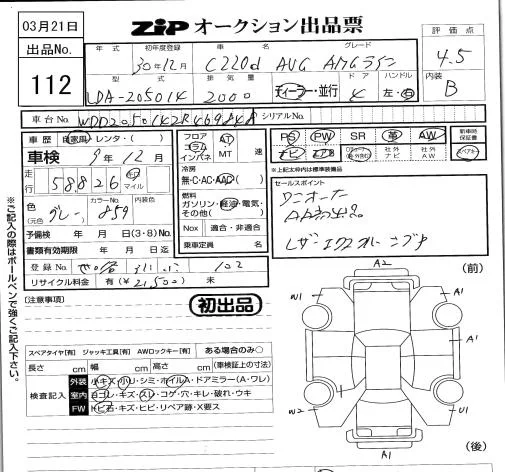 03月21日
ZiP オークション出品票
出品No.
112
年式 初年度登録 車名 グレード
30年12月 C220d AVG AMGライン
型式 排気量 ドア ハンドル
LDA-205014 2000 ディーラー・並行 4 左・右
評価点
4.5
内装
B
車台No. WDD2050142R469848 シリアルNo.
車歴 自家用・レンタ・( )
車検 9年12月
走行 58826 km マイル
色 (元色) グレー カラーNo. 859 内装色
予備検 年 月 日(3・8)No.
書類有効期限 年 月 日迄
登録No. 102
リサイクル料金 有(¥21,500) 未
フロア コラム インパネ AT MT 速
冷房
無・C・AC・AAC( )
燃料
ガソリン・軽油・電気・その他( )
Nox 適合・非適合
乗車定員 名
PS PW SR 革 AW
ナビ 社外ナビ 社外AW
新車時保証書
※上記太枠内は標準装備品
セールスポイント
ワンオーナー
(注意事項)
初出品
スペアタイヤ[有] ジャッキ工具[有] AWロックキー[有] ある場合のみ○
長さ cm 幅 cm 高さ cm (車検証上の寸法)
検査記入
外装 小キズ・小リ・シミ・ホイルA・ドアミラー(A・ワレ)
室内 ヨゴレ・キズ・スレ・コゲ・穴・キレ・破れ・ウキ
FW トビ石・キズ・ヒビ・リペア跡・X要ス
※ご記入の際はボールペンで強くご記入下さい。
(前)
A2
W1 A1
A1
W2 U1
A1
(後)